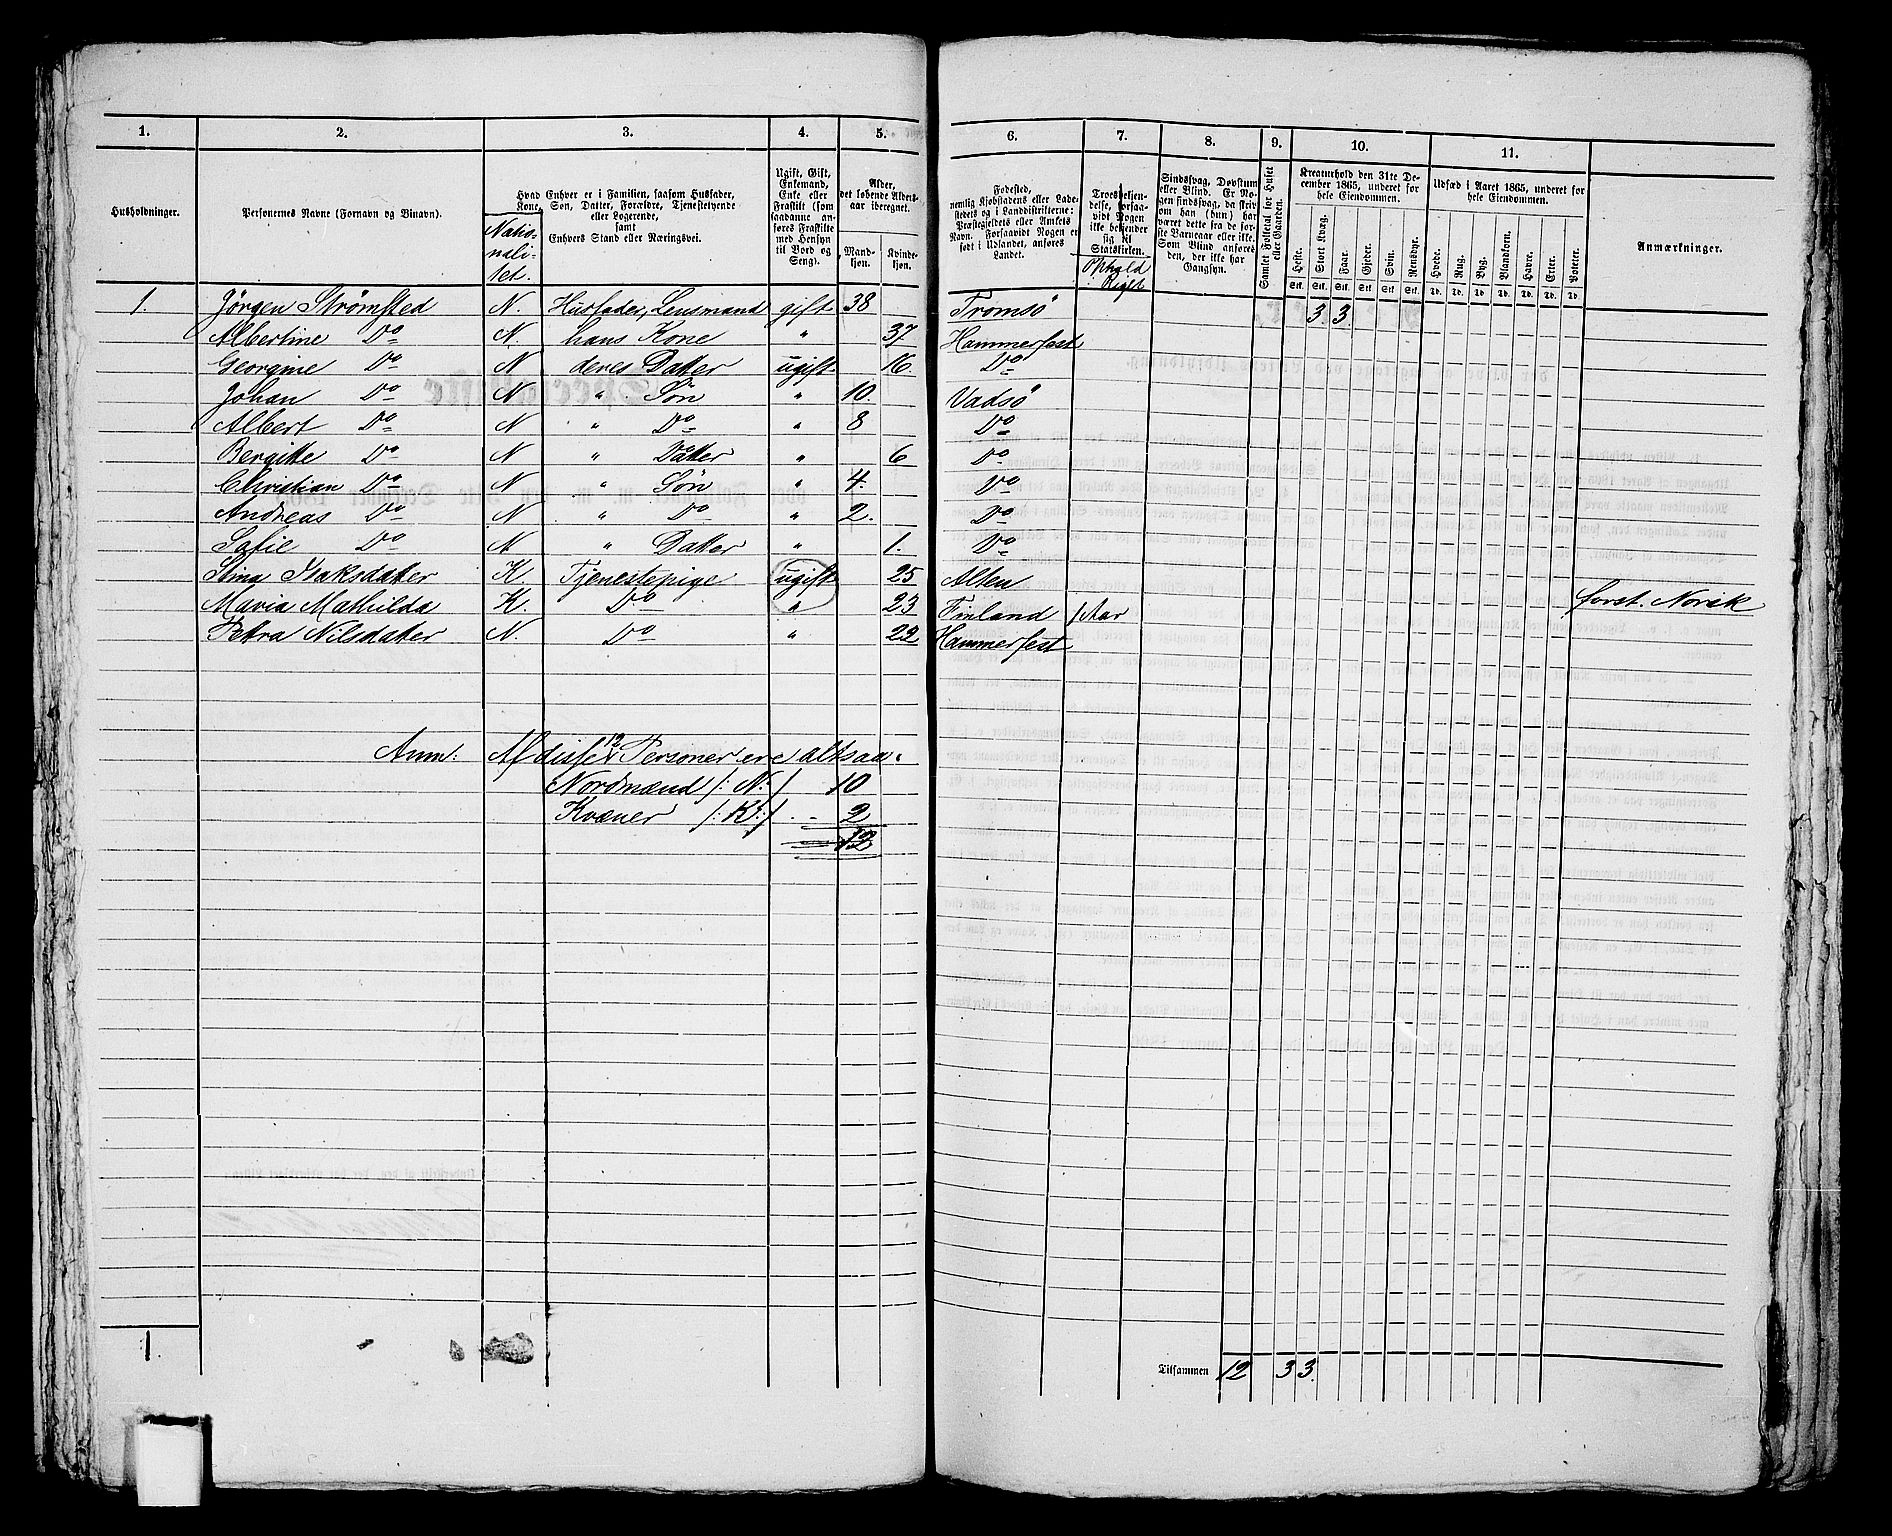 1. 2. 3. 4. 5. 6. 7. 8. 9. 10. 11.
Husholdninger.
Personernes Navne (Fornavn og Binavn).
Hvad Enhver er i Familien, saasom Husfader,
Kone, Søn, Datter, Forældre, Tjenestetyende
eller Logerende,
samt
Enhvers Stand eller Næringsvei.
Natio-
nali-
tet.
Ugift, Gift,
Enkemand,
Enke eller
Fraskilt (som
saadanne an-
føres Fraskilte
med Hensyn
til Bord og
Seng).
Alder,
det løbende Alders-
aar iberegnet.
Mand-
kjøn.
Kvinde-
kjøn.
Fødested,
nemlig Kjøbstadens eller Lade-
stedets og i Landdistrikterne:
Præstegjeldets eller Amtets
Navn. Forsaavidt Nogen er
født i Udlandet, anføres
Landet.
Troesbekjen-
delse, forsaa-
vidt Nogen
ikke bekjender
sig til
Statskirken.
Ophold
Riget
Sindssvag, Døvstum
eller Blind. Er No-
gen sindssvag, da skriv
om han (hun) har
været dette fra de før-
ste Barneaar eller ikke.
Som Blind anføres
den, der ikke har
Gangsyn.
Samlet Folketal for Huset
eller Gaarden.
Kreaturhold den 31te De-
cember 1865, underet for
hele Eiendommen.
Heste. Stort Kvæg. Faar. Gjeder. Svin. Rensdyr.
Stk. Stk. Stk. Stk. Stk. Stk.
Udsæd i Aaret 1865, underet for
hele Eiendommen.
Hvede. Rug. Byg. Blandkorn. Havre. Erter. Poteter.
Td. Td. Td. Td. Td. Td. Td.
Anmærkninger.
1. Jörgen Strömsted N. Husfader, Lensmand gift 38 Tromsö 3. 3.
Albertine Do N. hans Kone " 37 Hammerfest
Georgine Do N deres Datter ugift 16 Do
Johan Do N " Sön " 10. Vadsö
Albert Do N " Do " 8 Do
Bergitte Do N " Datter " 6 Do
Christian Do N " Sön " 4. Do
Andreas Do N " Do " 2. Do
Sofie Do N " Datter " 1. Do
Stina Isaksdatter K. Tjenestepige ugift 25 Alten
Maria Mathilda K. Do " 23 Finland 1 Aar forst. Norsk
Petra Nilsdatter N. Do " 22 Hammerfest
Anm: Af disse 12 Personer ere altsaa:
Nordmænd /: N:/ 10
Kvæner /: K:/ 2
12
1 Tilsammen 12 3 3